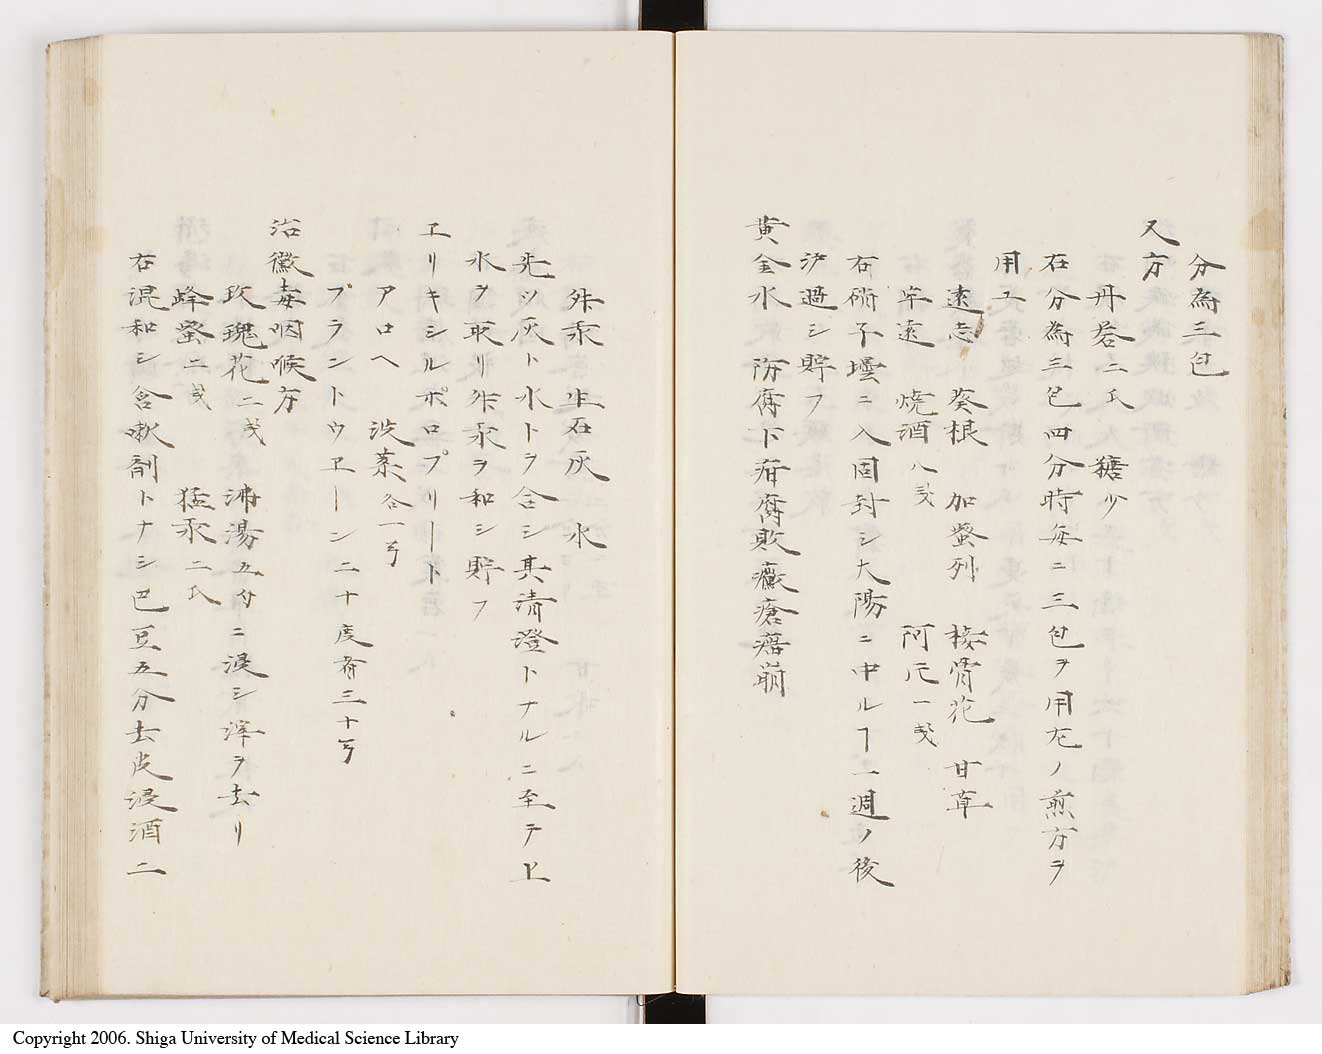 分為三包
又方
丹礬二氏　糖少
右分為三包四分時毎ニ三包ヲ用左ノ煎方ヲ
用ユ
遠志　葵根　加蛰列　接骨花　甘草
牢遠　焼酒八戔　阿片一戔
右硝子壜ニ入固封シ大陽ニ中ルヿ一週ノ後
沪過シ貯フ
黄金水　防腐下疳腐敗黴瘡痦崩
舛汞　生石灰　水
先ツ灰ト水トヲ合シ其清澄トナルニ至テ上
水ヲ取リ舛汞ヲ和シ貯フ
エリキシルポロプリート
アロヘ　泼蔂各一弓
ブランドウヱーン二十度斉三十弓
治黴毒咽喉方
玫瑰花二戔　沸湯五勺ニ浸シ滓ヲ去リ
蜂蜜二戔　猛汞二氏
右混和シ含嗽剤トナシ巴豆五分去皮浸酒二
Copyright 2006. Shiga University of Medical Science Library